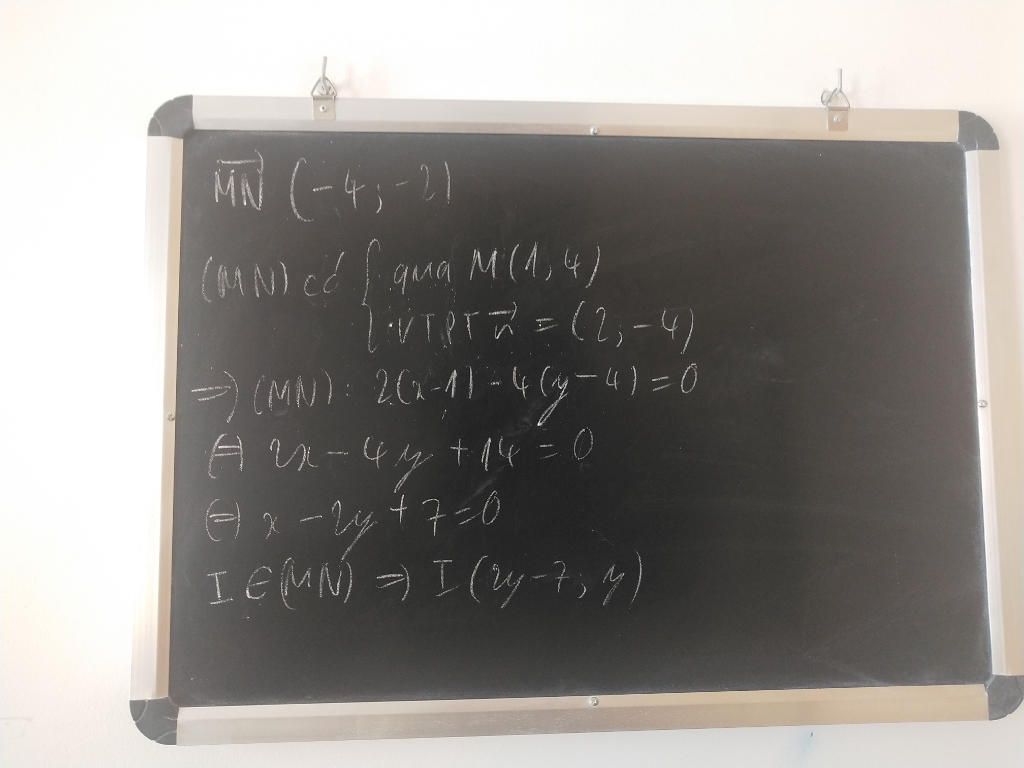 $\overrightarrow{MN}$ (-4; -2)
(MN) có { qua M(1, 4)
{ VTPT $\vec{n}$ = (2; -4)
=> (MN): 2(x-1) - 4(y-4) = 0
⇔ 2x - 4y + 14 = 0
⇔ x - 2y + 7 = 0
I ∈ (MN) => I(2y-7; y)